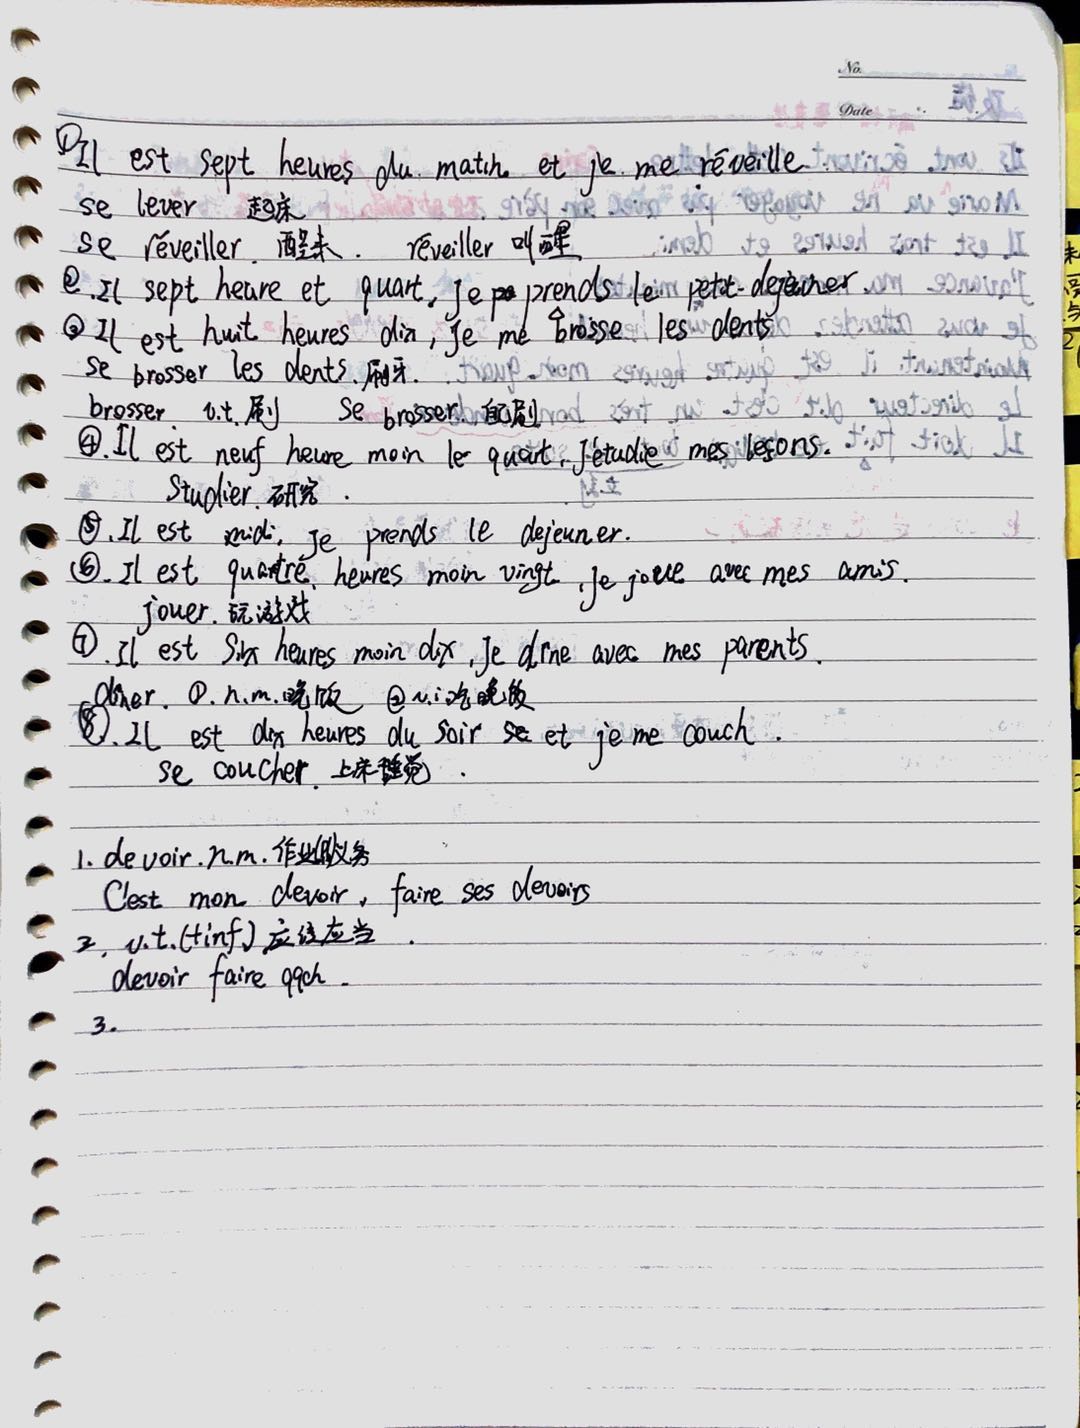 No.
Date
①Il est sept heures du matin et je me réveille
se lever 起床
se réveiller. 醒来. réveiller 叫醒
②.Il sept heure et quart, je prends le petit-dejeuner.
③Il est huit heures dix, je me brosse les dents
se brosser les dents.刷牙.
brosser v.t.刷 se brosser.
④.Il est neuf heure moin le quart, J'étudie mes leçons.
Studier.研究.
⑤.Il est midi, je prends le dejeuner.
⑥.Il est quatre heures moin vingt, Je joue avec mes amis.
jouer.玩游戏
⑦.Il est Six heures moin dix, Je dîne avec mes parents.
dîner. ①.n.m.晚饭 ②v.i吃晚饭
⑧.Il est dix heures du soir et je me couch.
se coucher.上床睡觉.
1. devoir.n.m.作业
C'est mon devoir, faire ses devoirs
2. v.t.(+inf)应该应当.
devoir faire qqch.
3.